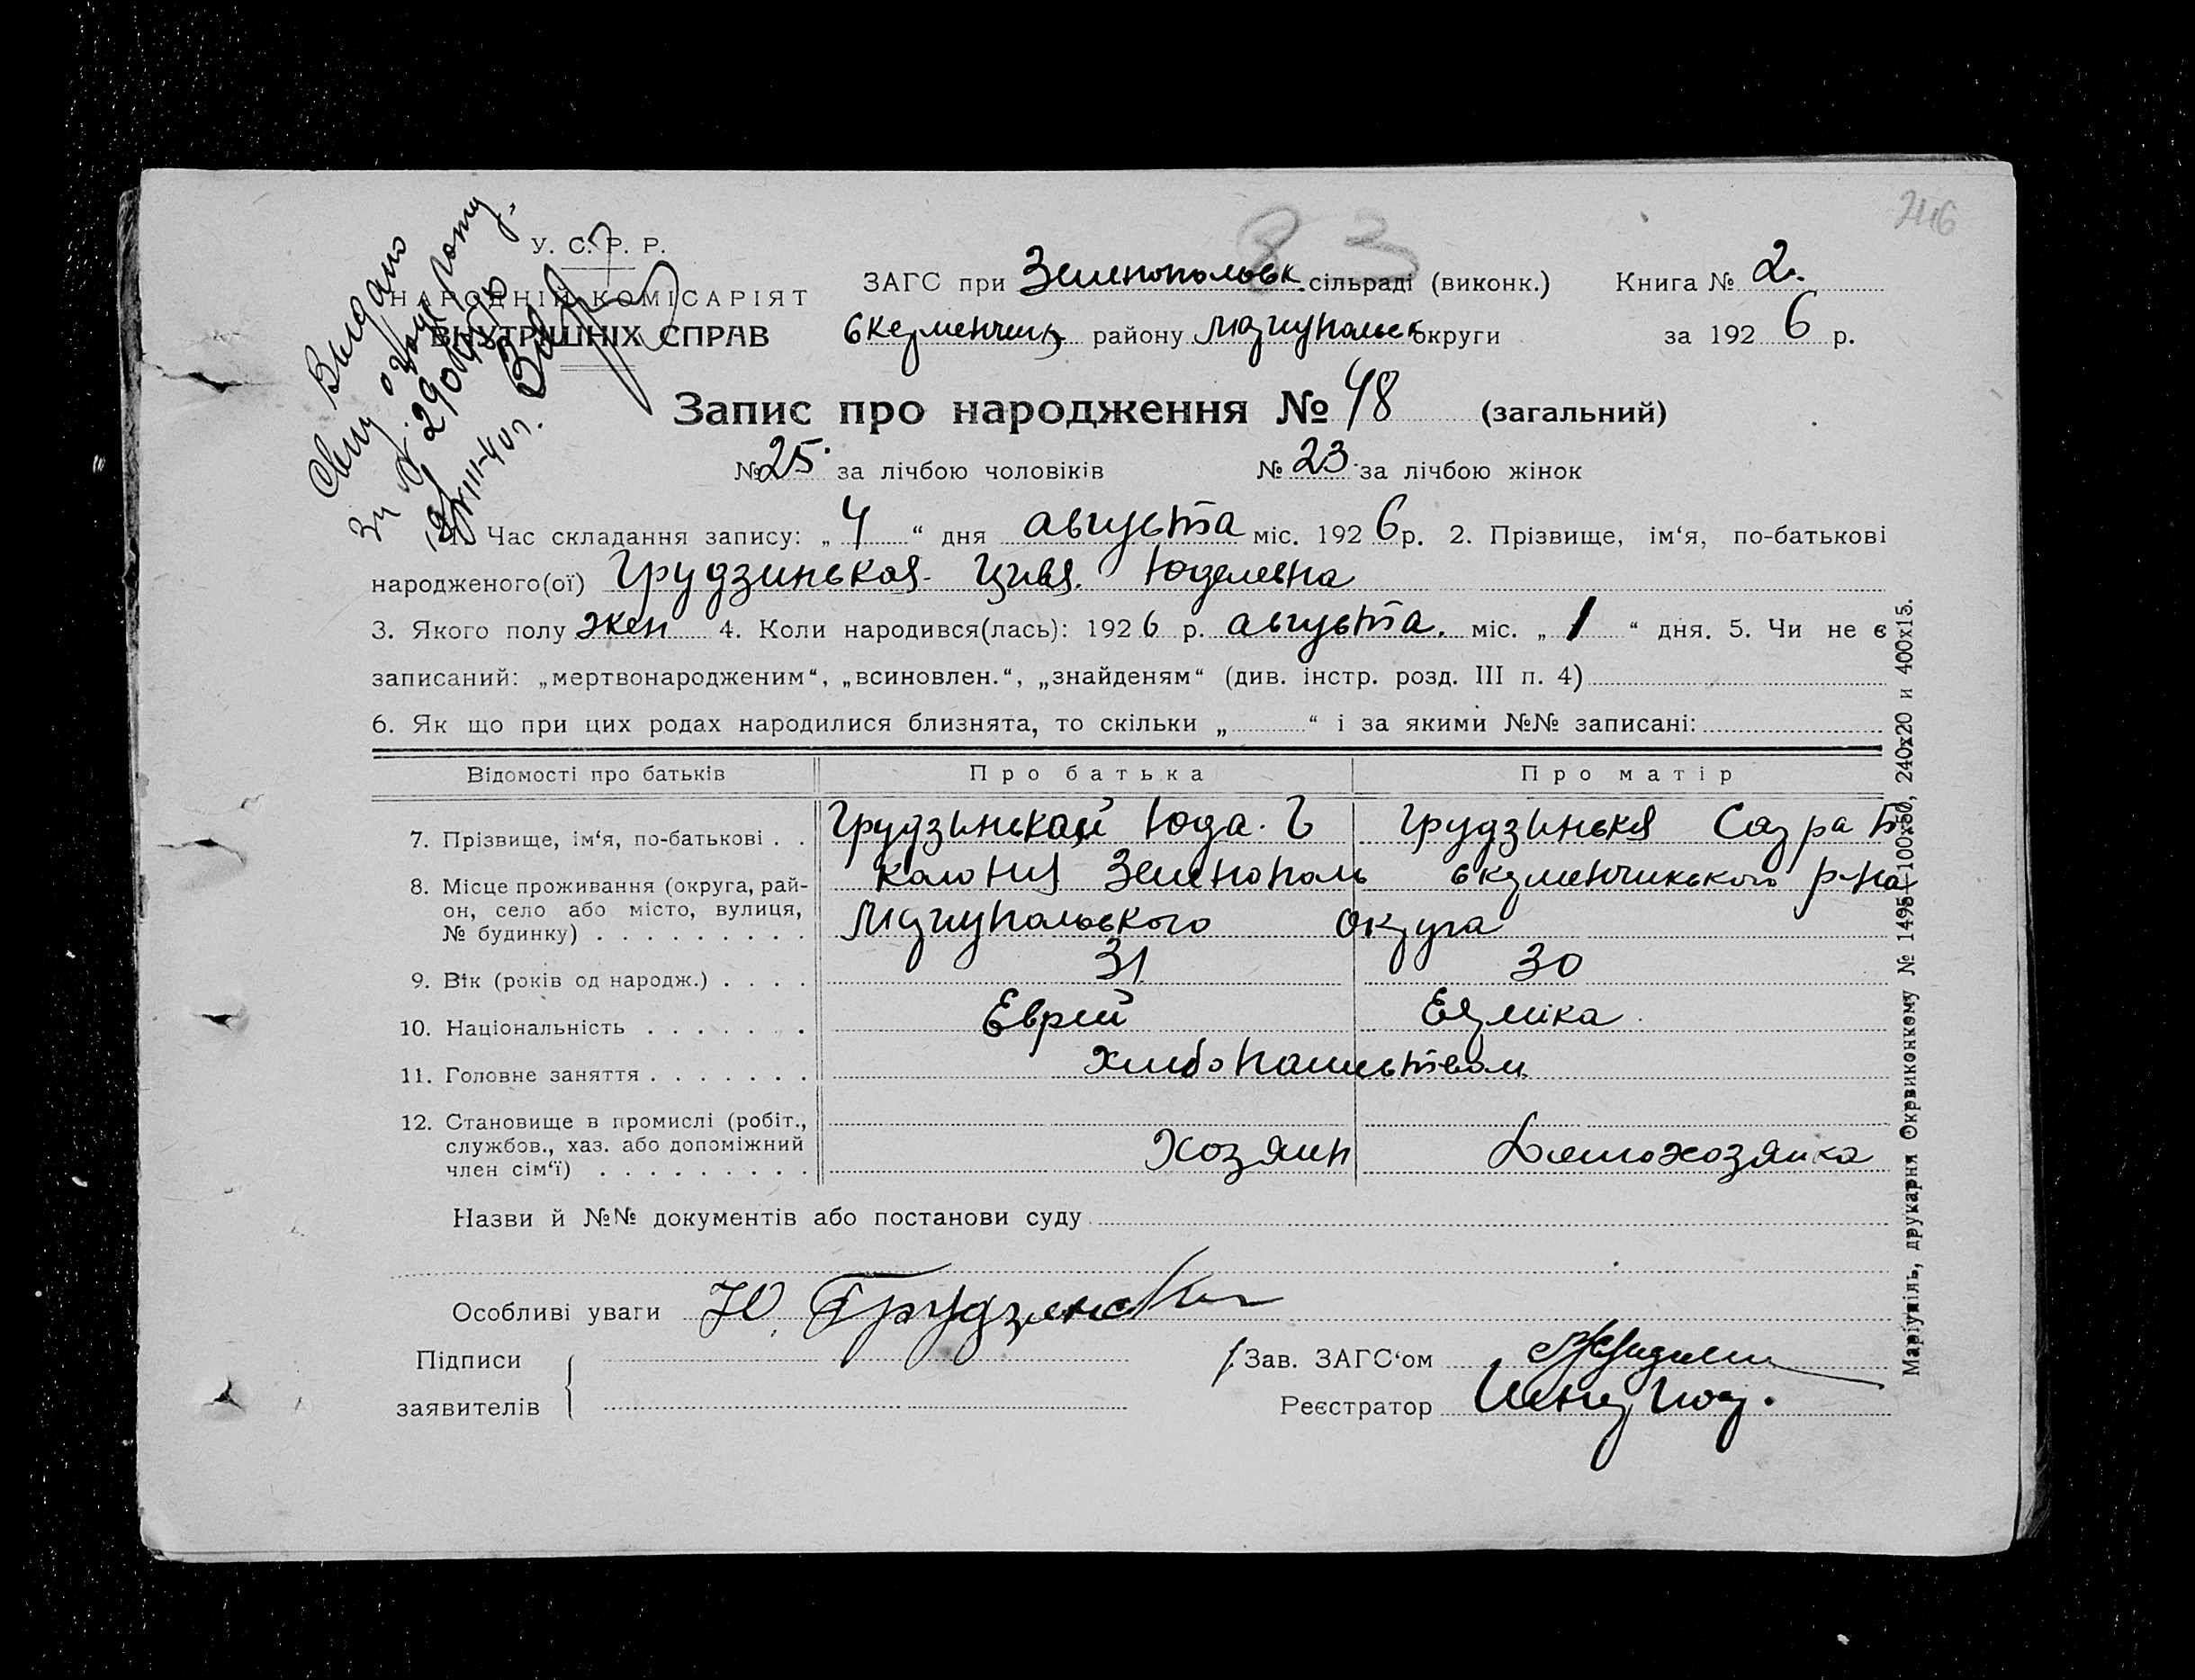 246
83
Выдано
У. С. Р. Р.
НАРОДНІЙ КОМІСАРІЯТ
ВНУТРІШНІХ СПРАВ
ЗАГС при Зеленопольск. сільраді (виконк.) Книга № 2.
району Мариупольск округи за 1926 р.
Запис про народження № 48 (загальний)
№ 25. за лічбою чоловіків № 23. за лічбою жінок
1. Час складання запису: „4“ дня августа міс. 1926 р. 2. Прізвище, ім‘я, по-батькові
народженого(ої) Грудзинская Цивя. Юделевна
3. Якого полу жен 4. Коли народився(лась): 1926 р. августа. міс. „1“ дня. 5. Чи не є
записаний: „мертвонародженим“, „всиновлен.“, „знайденям“ (див. інстр. розд. III п. 4)
6. Як що при цих родах народилися близнята, то скільки „ “ і за якими №№ записані:
Відомості про батьків Про батька Про матір
7. Прізвище, ім‘я, по-батькові . . Грудзинский Юда. Г Грудзинькя Сарра Б
8. Місце проживання (округа, рай-
он, село або місто, вулиця,
№ будинку) . . . . . . . . .
Колония Зеленополь р-на
Мариупольского Округа
9. Вік (років од народж.) . . . . 31 30
10. Національність . . . . . . . Еврей
11. Головне заняття . . . . . . . Хлибопашеством
12. Становище в промислі (робіт.,
службов., хаз. або допоміжний
член сім‘ї) . . . . . . . . . Хозяин Домохозяика
Назви й №№ документів або постанови суду
Особливі уваги Ю. Грудзинский
Підписи
заявителів
Зав. ЗАГС‘ом
Реєстратор
Маріупіль, друкарня Окрвиконкому № 1495—100х50, 240х20 и 400х15.